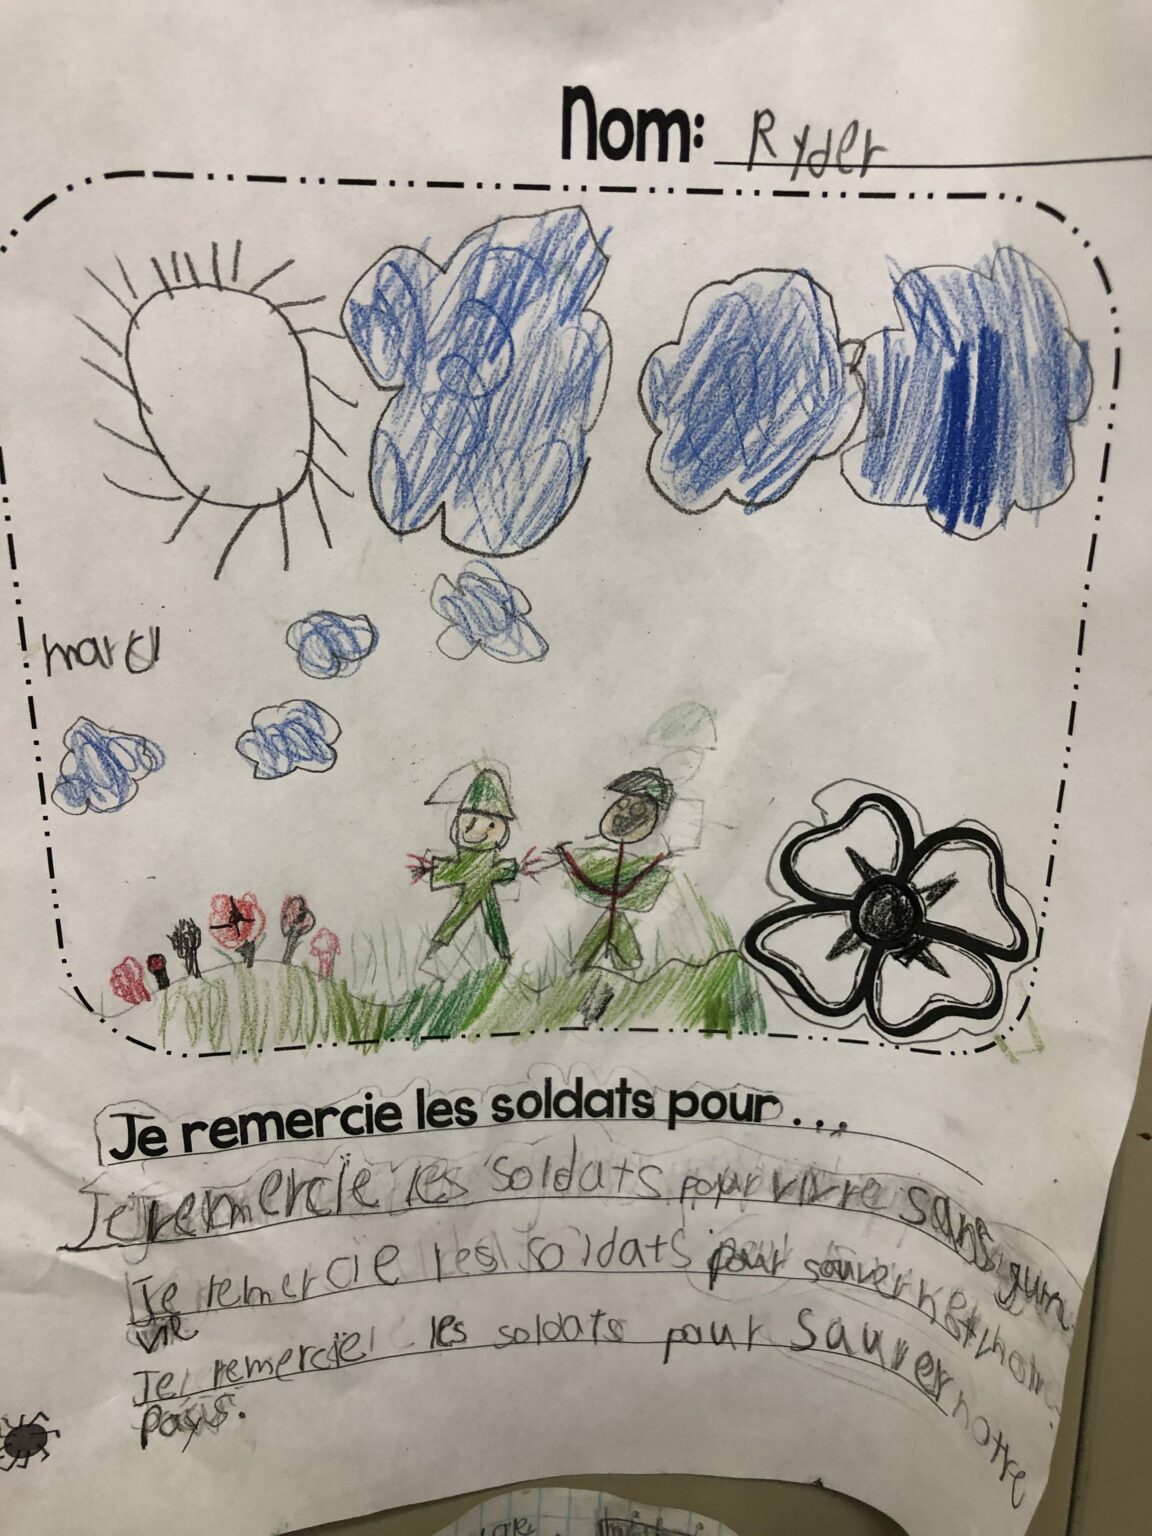 Nom: Ryder
marcl
Je remercie les soldats pour...
Je remercie les soldats pour vivre sans
Je remercie les soldats pour sauver notre
vie
Je remercie les soldats pour sauver notre
pays.